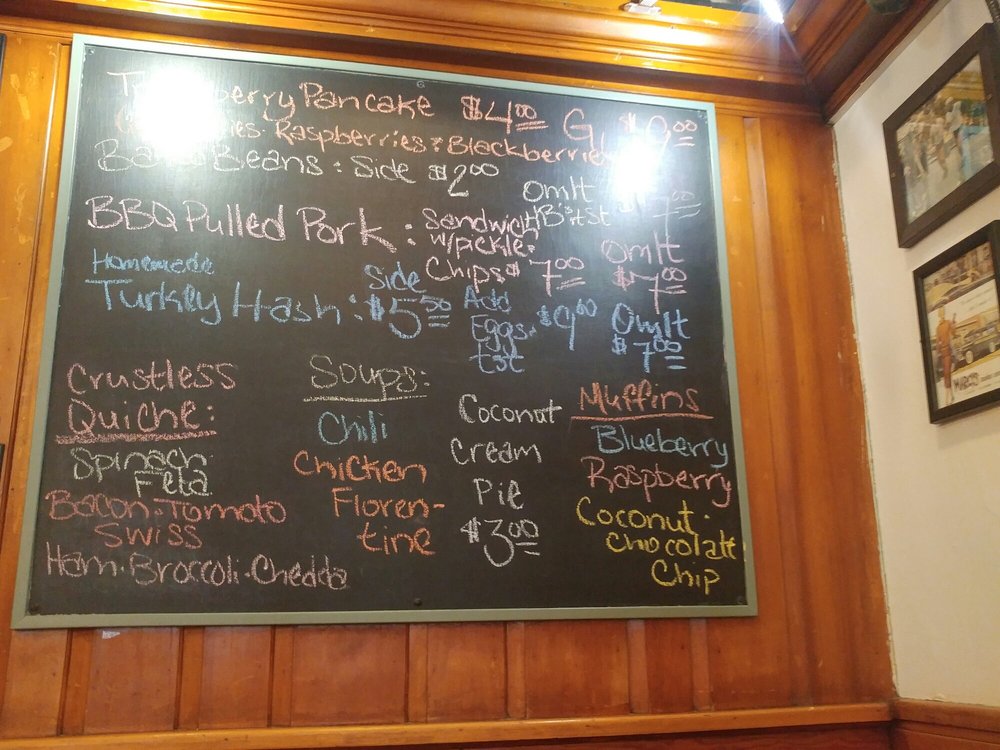 Pancake $4.00 G, $9.00
Raspberries & Blackberries
Beans: Side $2.00
Omlt
BBQ Pulled Pork: Sandwich
w/pickle.
Chips $7.00
Omlt
$7.00
Homemade
Turkey Hash:
Side
$5.50
Add
Eggs.
tst
$9.00
Omlt
$7.00
Crustless
Quiche:
Spinach.
Feta
Bacon.Tomato
Swiss
Ham.Broccoli.Chedda
Soups:
Chili
Chicken
Floren-
tine
Coconut
Cream
Pie
$3.00
Muffins
Blueberry
Raspberry
Coconut.
Chocolate
Chip